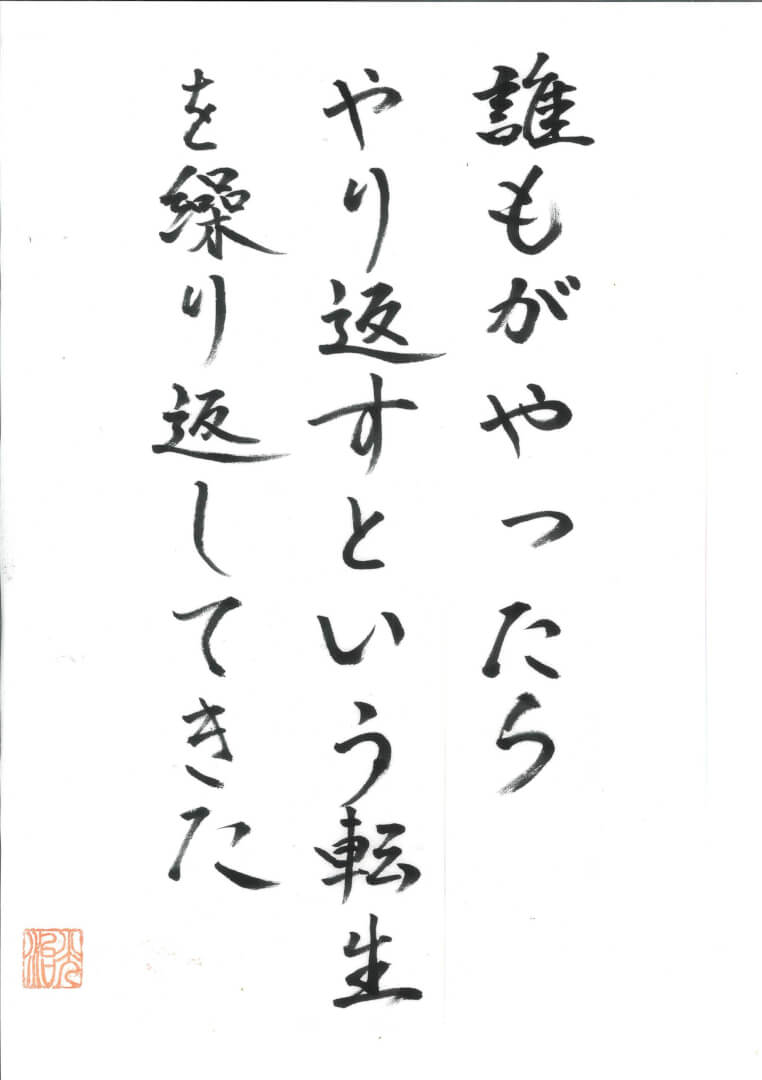 誰もがやったら
やり返すという転生
を繰り返してきた